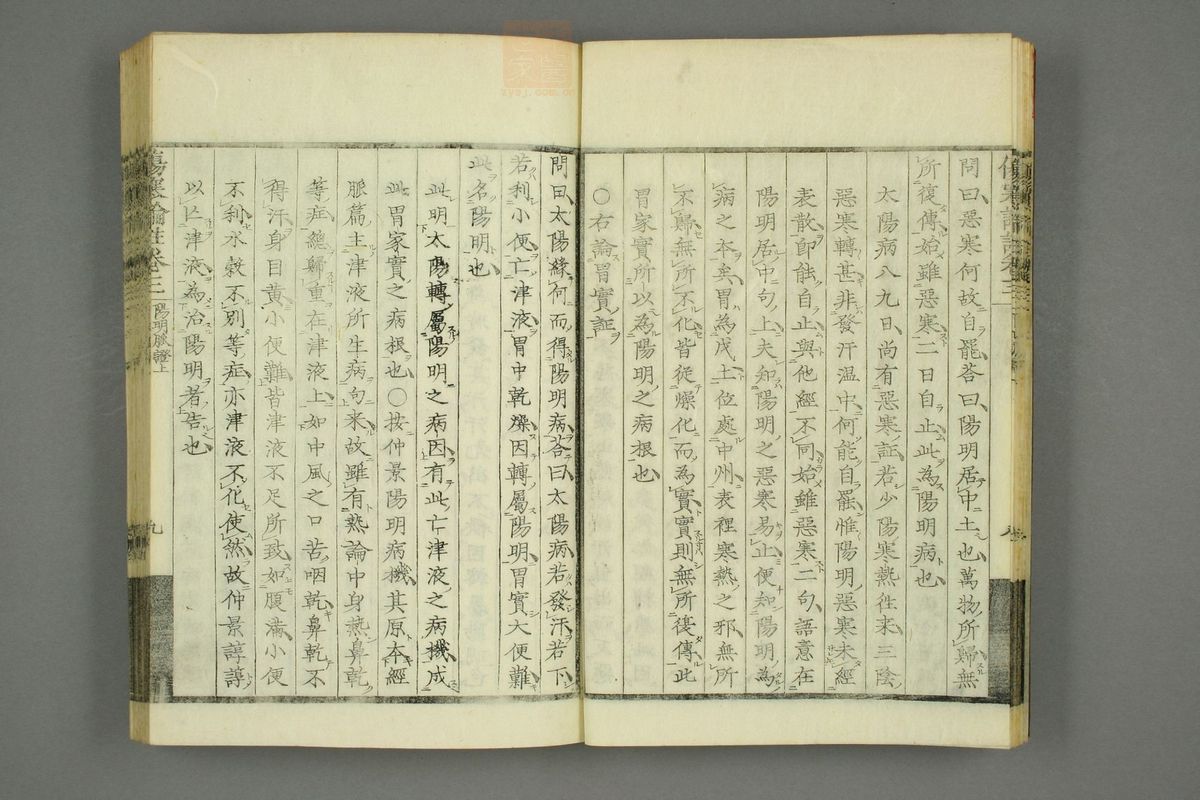 問曰惡寒何故自罷荅曰陽明居中土也萬物所歸無
所復傳始雖惡寒二日自止此為陽明病也
太陽病八九日尚有惡寒証若少陽寒熱徃来三陰
惡寒轉甚非發汗温中何能自罷惟陽明惡寒未經
表散卽能自止與他經不同始雖惡寒二句語意在
陽明居中句上夫知陽明之惡寒易止便知陽明為
病之本矣胃為戊土位處中州表裡寒熱之邪無所
不歸無所不化皆從燥化而為實實則無所復傳此
胃家實所以為陽明之病根也
○右論胃實証
問曰太陽緣何而得陽明病荅曰太陽病若發汗若下
若利小便亡津液胃中乾燥因轉屬陽明胃實大便難
此名陽明也
此明太陽轉屬陽明之病因有此亡津液之病機成
此胃家實之病根也○按仲景陽明病機其原本經
脈篇主津液所生病句来故雖有熱論中身熱鼻乾
等症總歸重在津液上如中風之口苦咽乾鼻乾不
得汗身目黃小便難皆津液不足所致如腹滿小便
不利水穀不別等症亦津液不化使然故仲景諄諄
以亾津液為治陽明者告也
傷寒論註卷二 陽明脈證上
九